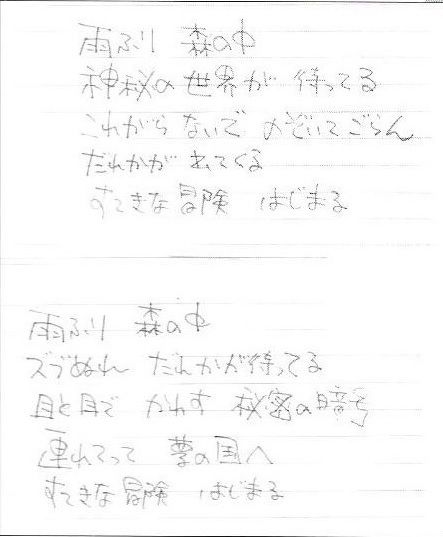 雨ふり 森の中
神秘の世界が 待ってる
こわがらないで のぞいてごらん
だれかが 出てくる
すてきな冒険 はじまる
雨ふり 森の中
ズブぬれ だれかが待ってる
目と目で かわす 秘密の暗号
連れてって 夢の国へ
すてきな冒険 はじまる